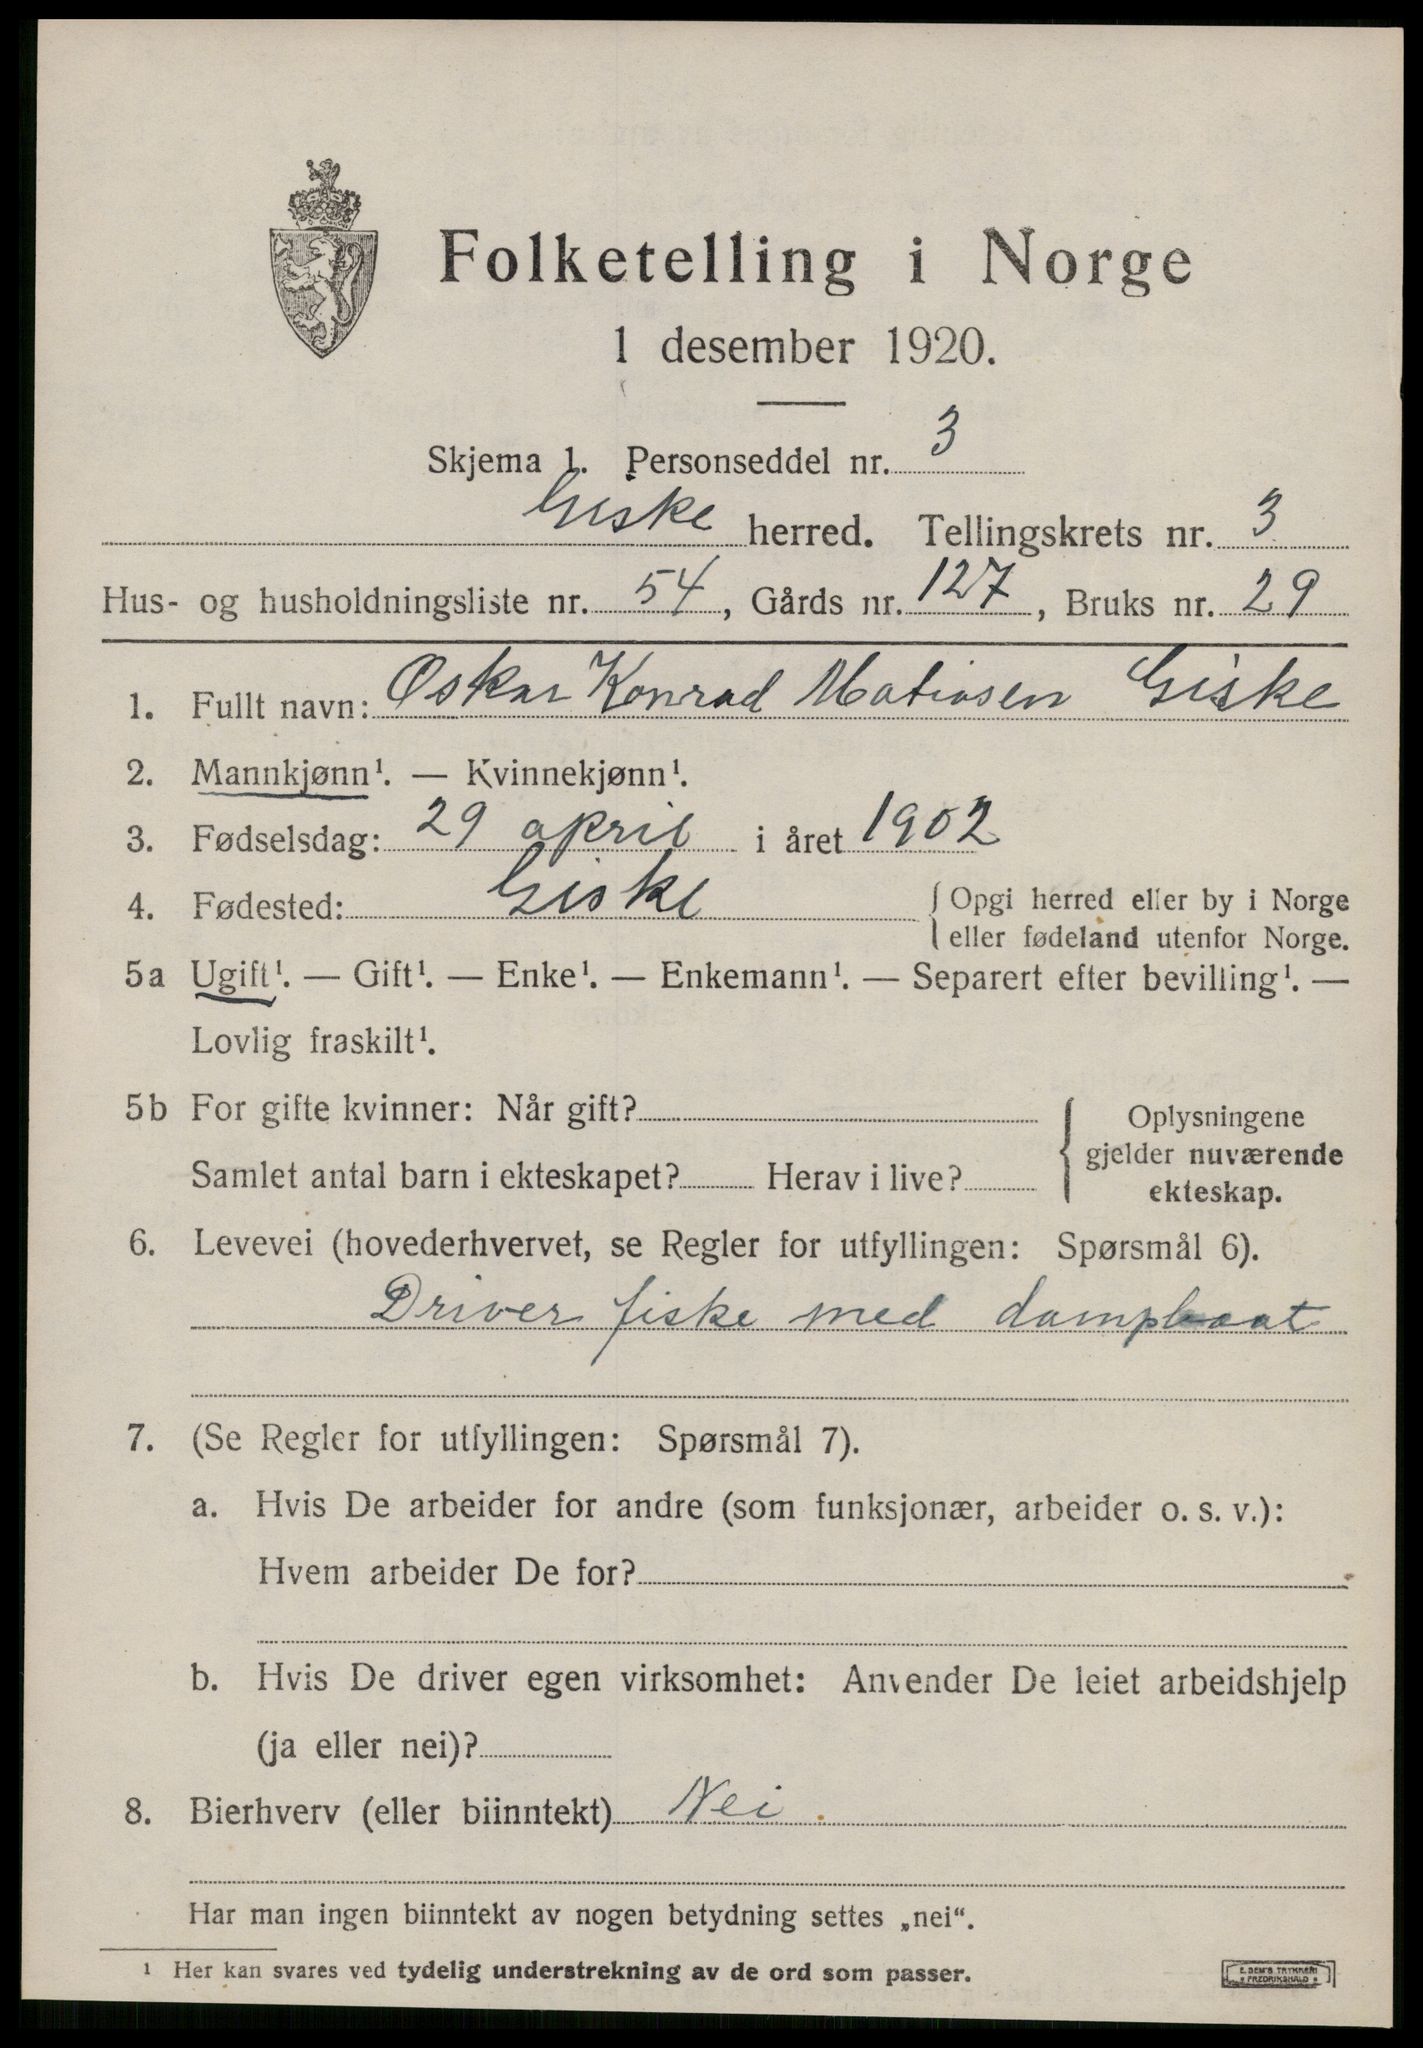 Folketelling i Norge
1 desember 1920.
Skjema 1. Personseddel nr. 3
Giske herred. Tellingskrets nr. 3
Hus- og husholdningsliste nr. 54, Gårds nr. 127, Bruks nr. 29
1. Fullt navn: Oskar Konrad Matiasen Giske
2. Mannkjønn¹. — Kvinnekjønn¹.
3. Fødselsdag: 29 april i året 1902
4. Fødested: Giske { Opgi herred eller by i Norge
eller fødeland utenfor Norge.
5a Ugift¹. — Gift¹. — Enke¹. — Enkemann¹. — Separert efter bevilling¹. —
Lovlig fraskilt¹.
5b For gifte kvinner: Når gift?
Samlet antal barn i ekteskapet? Herav i live?
Oplysningene
gjelder nuværende
ekteskap.
6. Levevei (hovederhvervet, se Regler for utfyllingen: Spørsmål 6).
Driver fiske med dampbaat
7. (Se Regler for utfyllingen: Spørsmål 7).
a. Hvis De arbeider for andre (som funksjonær, arbeider o. s. v.):
Hvem arbeider De for?
b. Hvis De driver egen virksomhet: Anvender De leiet arbeidshjelp
(ja eller nei)?
8. Bierhverv (eller biinntekt) Nei.
Har man ingen biinntekt av nogen betydning settes „nei“.
¹ Her kan svares ved tydelig understrekning av de ord som passer.
E. SEM'S TRYKKERI
FREDRIKSHALD